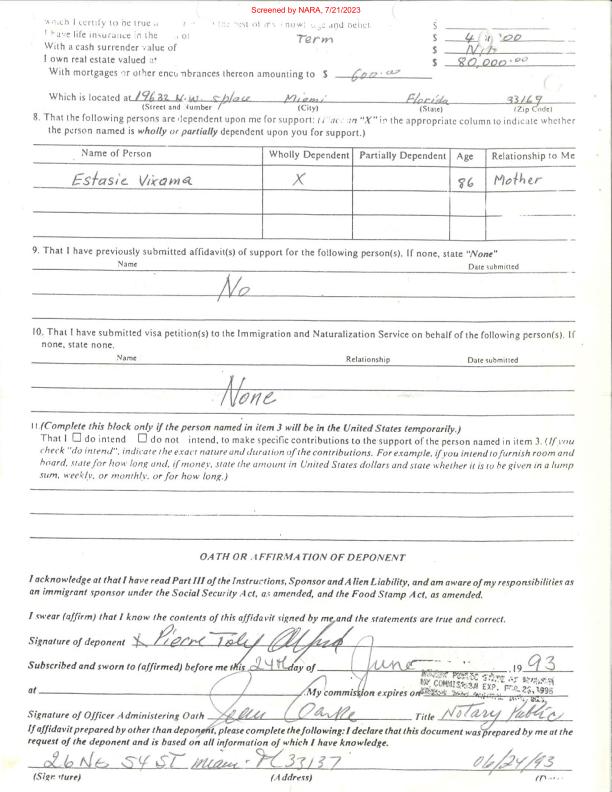 Screened by NARA, 7/21/2023
which I certify to be true a the best of my knowledge and belief. $
I have life insurance in the of Term $
With a cash surrender value of $ N/A
I own real estate valued at $ 80,000.00
With mortgages or other encumbrances thereon amounting to $ 600.00
Which is located at 19632 N.W. 5 place Miami Florida 33169
(Street and Number) (City) (State) (Zip Code)
8. That the following persons are dependent upon me for support: an "X" in the appropriate column to indicate whether
the person named is wholly or partially dependent upon you for support.)
Name of Person Wholly Dependent Partially Dependent Age Relationship to Me
Estasie Vixama X 86 Mother
9. That I have previously submitted affidavit(s) of support for the following person(s). If none, state "None"
Name Date submitted
No
10. That I have submitted visa petition(s) to the Immigration and Naturalization Service on behalf of the following person(s). If
none, state none.
Name Relationship Date submitted
None
11. (Complete this block only if the person named in item 3 will be in the United States temporarily.)
That I ☐ do intend ☐ do not intend, to make specific contributions to the support of the person named in item 3. (If you
check "do intend", indicate the exact nature and duration of the contributions. For example, if you intend to furnish room and
board, state for how long and, if money, state the amount in United States dollars and state whether it is to be given in a lump
sum, weekly, or monthly, or for how long.)
OATH OR AFFIRMATION OF DEPONENT
I acknowledge at that I have read Part III of the Instructions, Sponsor and Alien Liability, and am aware of my responsibilities as
an immigrant sponsor under the Social Security Act, as amended, and the Food Stamp Act, as amended.
I swear (affirm) that I know the contents of this affidavit signed by me and the statements are true and correct.
Signature of deponent X Pierre Toly
Subscribed and sworn to (affirmed) before me this 24th day of June , 19 93
NOTARY PUBLIC STATE OF
MY COMMISSION EXP. FEB. 26, 1996
at , My commission expires on
Signature of Officer Administering Oath Jean Title Notary Public
If affidavit prepared by other than deponent, please complete the following: I declare that this document was prepared by me at the
request of the deponent and is based on all information of which I have knowledge.
26 NE 54 ST Miami Fl 33137 06/24/93
(Signature) (Address)